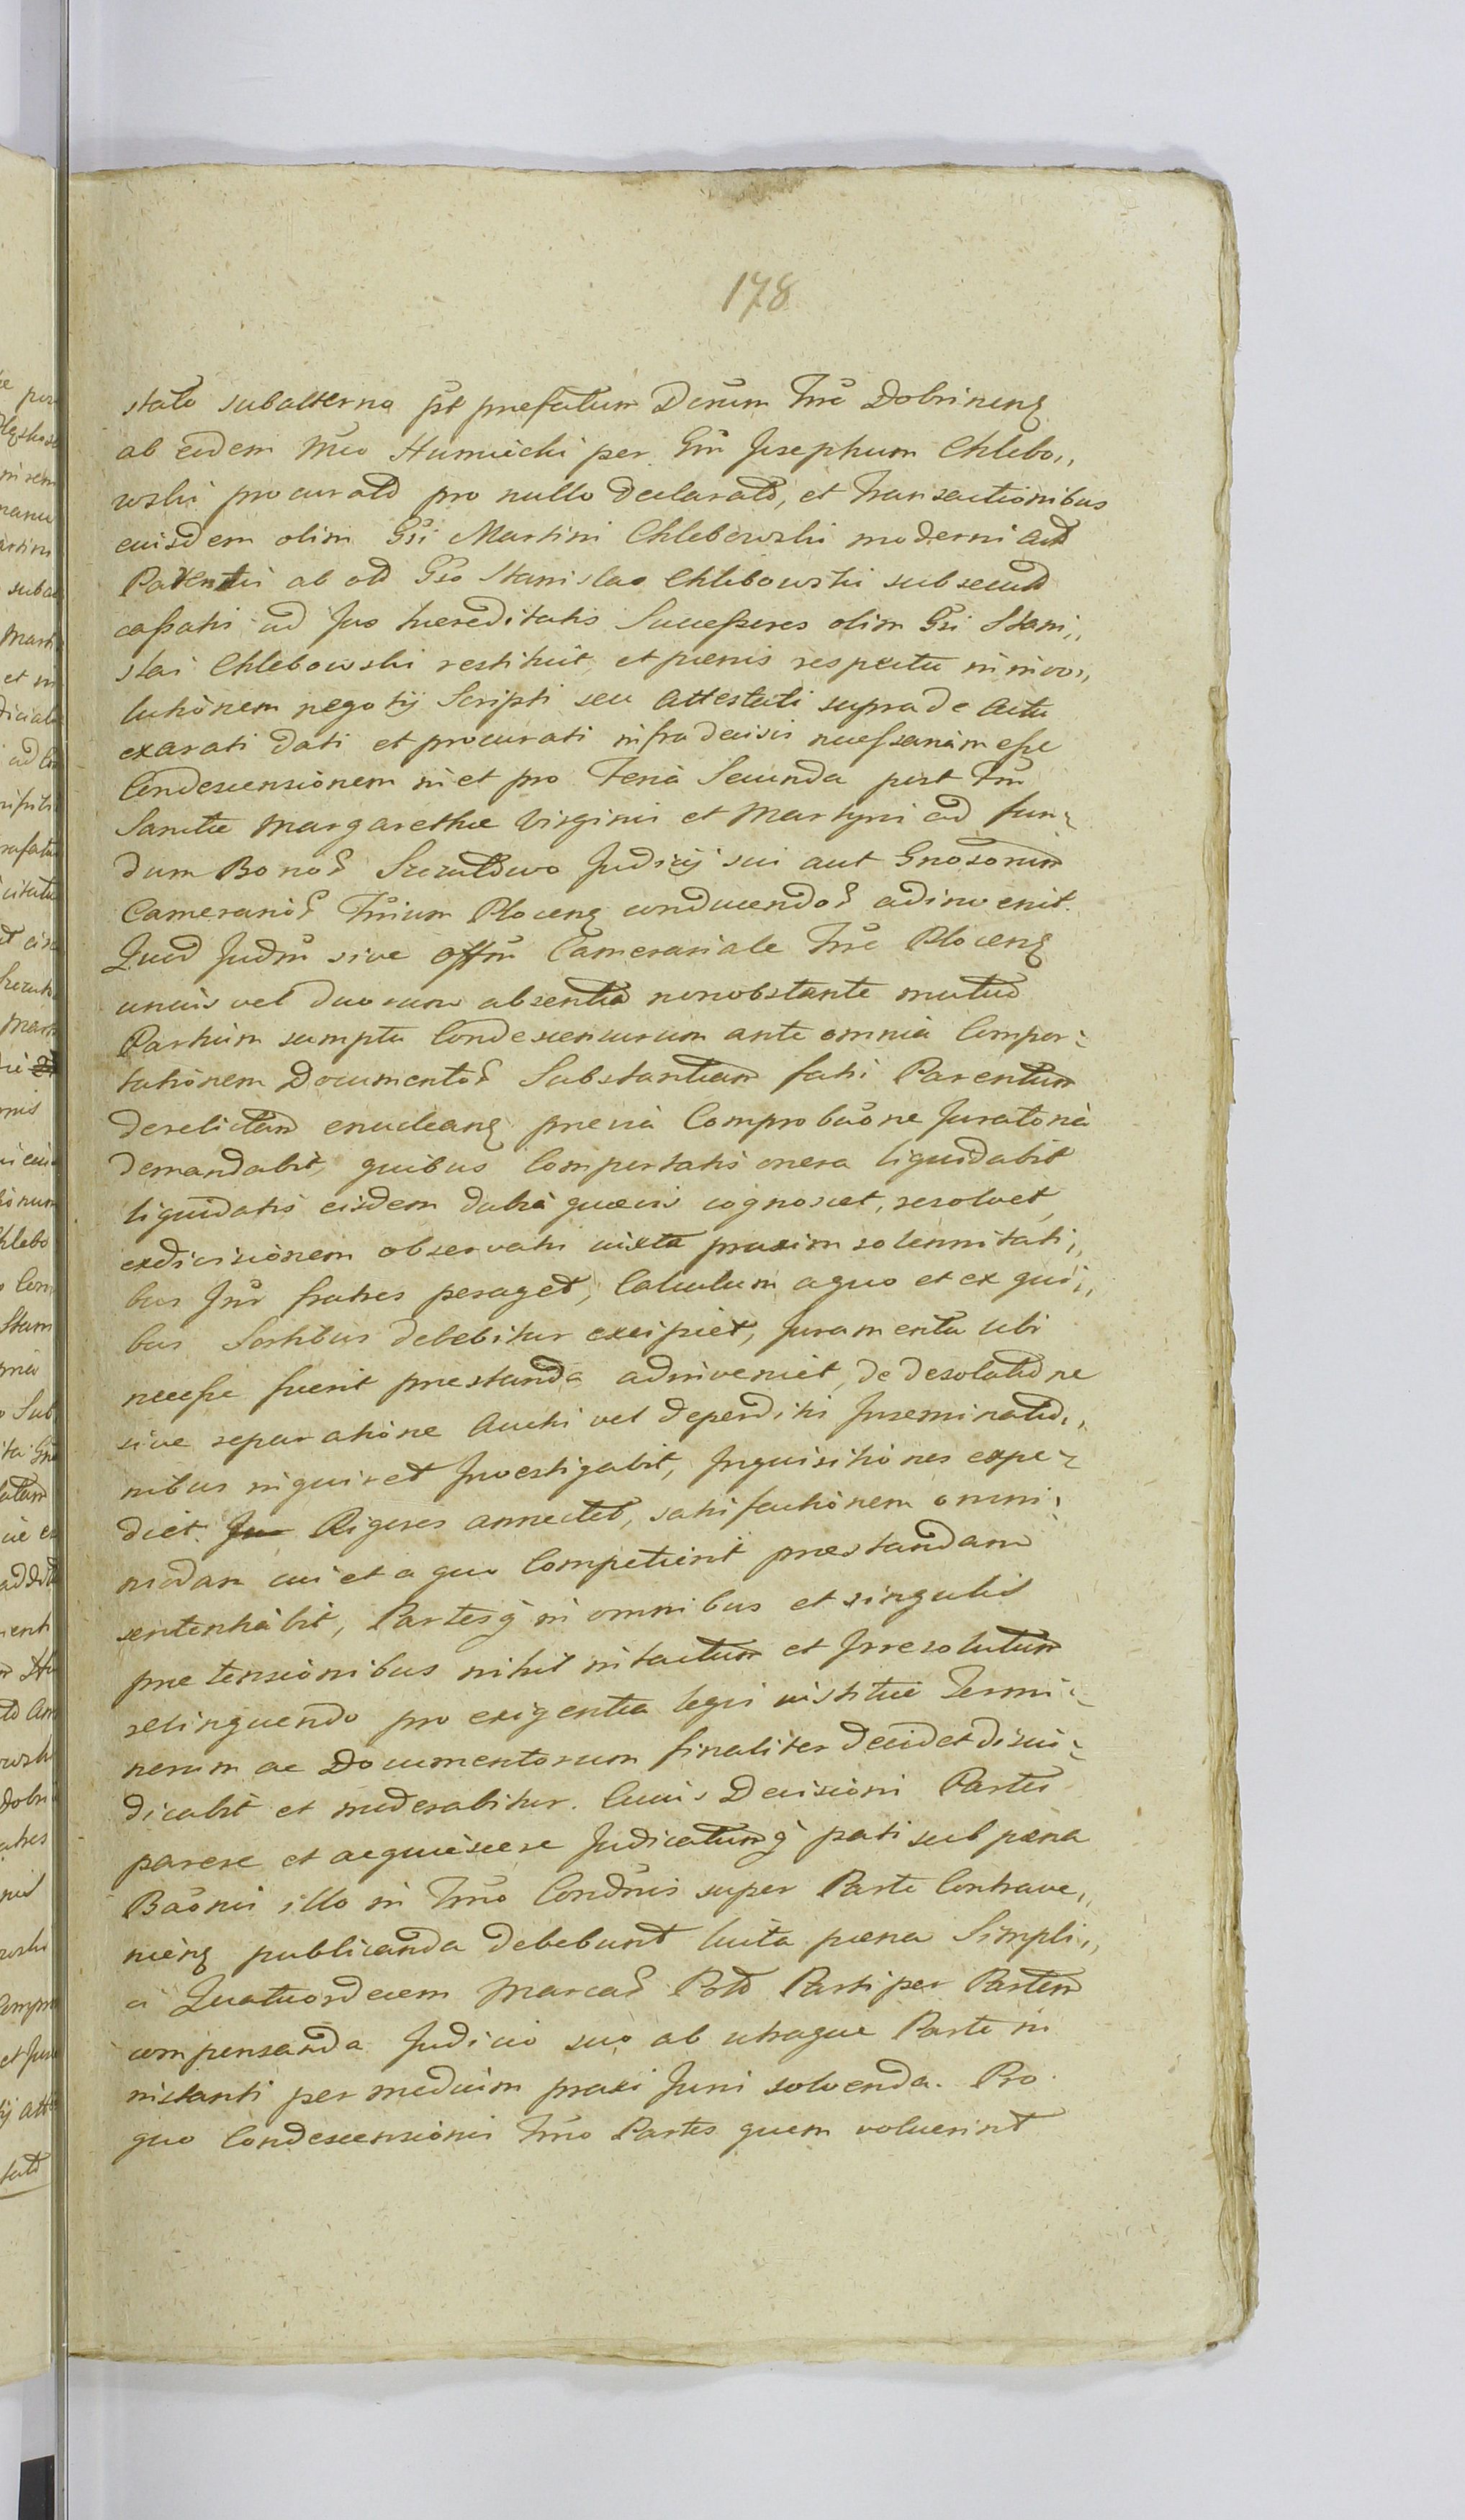 178
stato subalterno pst prefatum Dcrum Trre Dobrinenſ
ab eodem Mco Humiecki per Gm Josephum Chlebo,,
wski procurato pro nullo declarato, et Transactionibus
eiusdem olim Gsi Martini Chlebowski moderni act
Parentis ab od Gso Stanislao Chlebowski subsecut
cassatis ad Jus hæreditatis Successores olim Gsi Stani,,
slai Chlebowski restituit, et pœnis respectu in invo,,
lutionem negotij Scripti seu Attestati supra de Actu
exarati dati et procurati infra decisis necessariam esse
Condescensionem in et pro Feria Secunda post Fm
Sanctæ Margarethæ Virginis et Martyris ad fun-
dum Bonoꝝ Szczutowo Judicij sui aut Gnosorum
Camerarioꝝ Trrium Plocenſ conducendoꝝ adinvenit.
Quod Judm sive Offm Camerariale Trre Plocenſ
unius vel duorum absentia nonobstante mutuo
Partium sumptu Condescensurum ante omnia Compor-
tationem Documentoꝝ Substantiam fati Parentum
derelictam enucleanſ prævia Comprobaone Juratoria
demandabit, quibus Comportatis onera liquidabit
liquidatis eisdem dubia quævis cognoscet, resolvet,
exdivisionem observatis iuxta praxim solennitati,,
bus Jur fratres peraget, Calculum a quo et ex qui,,
bus Sortibus debebitur excipiet, Juramenta ubi
necesse fuerit præstanda adinveniet, de desolatione
sive reparatione Aucti vel deperditi Inseminatio,,
nibus inquiret Investigabit, Inquisitiones expe-
diet. Rigores annectet, satisfactionem omni-
modam cui et a quo Competierit præstandam
sententiabit, Partesq in omnibus et singulis
prætensionibus nihil intactum et Irresolutum
relinquendo pro exigentia legis iustitiæ Termi-
norum ac Documentorum finaliter decidet dijui-
dicabit et moderabitur. Cuius Decisioni Partes
parere et acquiescere Judicatumq pati sub pœna
Baonis illo in Trno Condnis super Parte Contrave,,
nienſ publicanda debebunt luita pœna Simpli,,
ci Quatuordecem Marcaꝝ Polo Parti per Partem
compensanda Judicio suo ab utraque Parte in
instanti per medium praxi Juris solvenda. Pro
quo Condescensionis Trno Partes quem voluerint